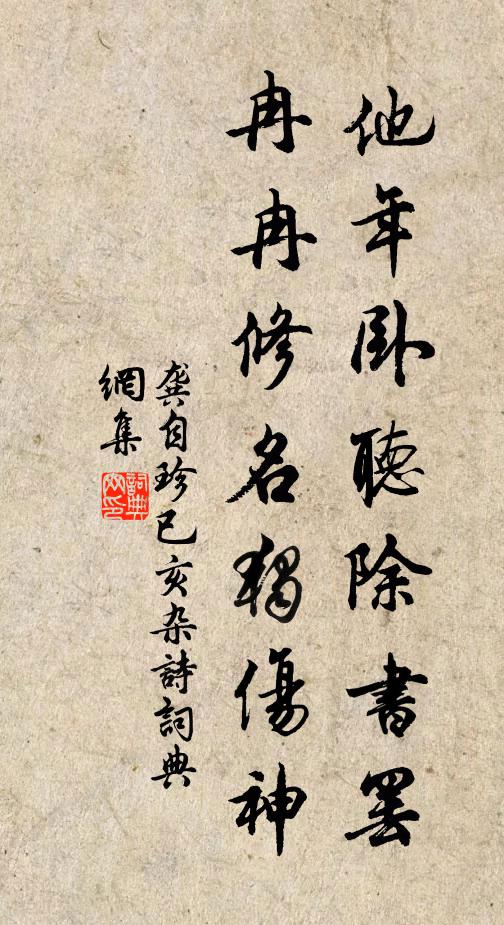 他年卧聽除書罷
冉冉修名獨傷神
龔自珍己亥杂詩詞典
網集
詞典
网印